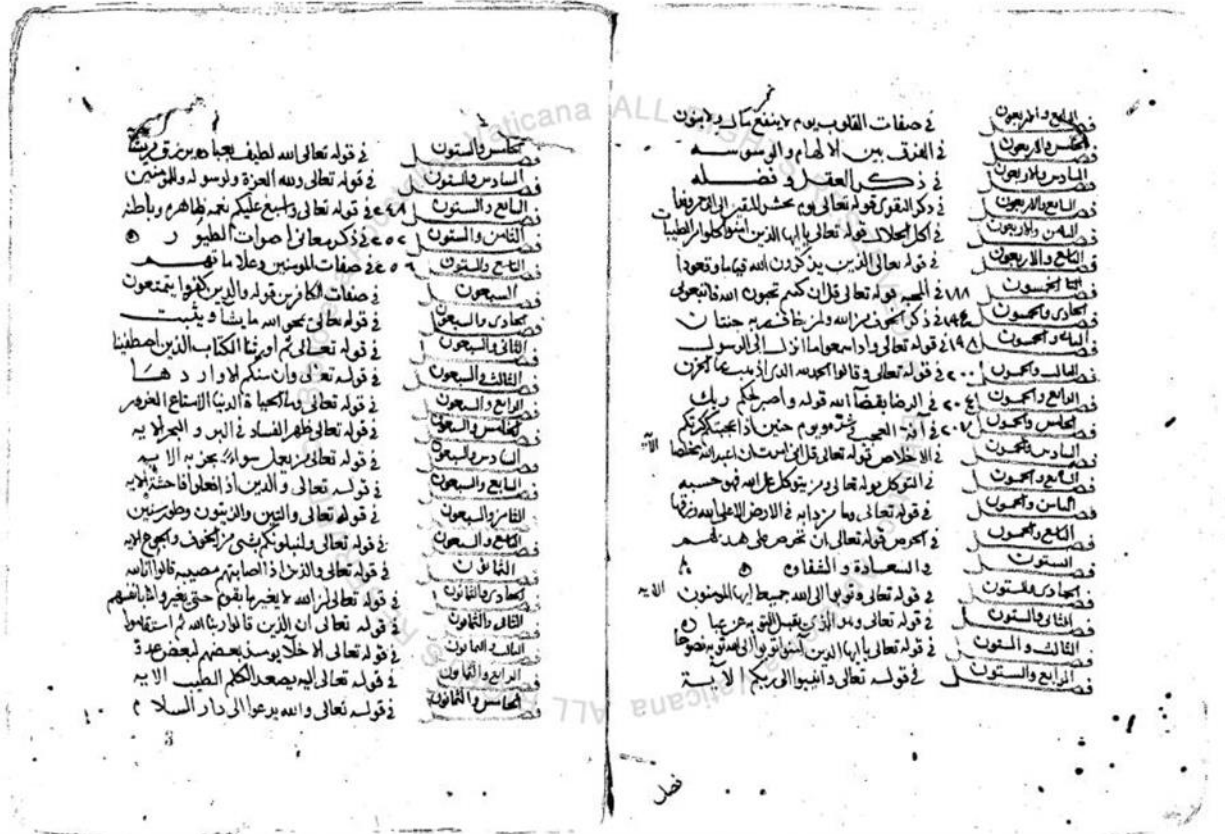 فصل الرابع والاربعون في صفات القلوب يوم لا ينفع مال ولا بنون
فصل الخامس والاربعون في الفرق بين الالهام والوسوسه
فصل السادس والاربعون في ذكر العقل وفضله
فصل السابع والاربعون في ذكر التقوى قوله تعالى يوم نحشر المتقين الى الرحمن وفدا
فصل الثامن والاربعون في اكل الحلال قوله تعالى يا ايها الذين امنوا كلوا من الطيبات
فصل التاسع والاربعون في قوله تعالى الذين يذكرون الله قياما وقعودا
فصل الخمسون ١٨٨ في المحبه قوله تعالى قل ان كنتم تحبون الله فاتبعوني
فصل الحادى والخمسون في ذكر الخوف من الله ولمن خاف مقام ربه جنتان
فصل والخمسون ١٩٨ في قوله تعالى واذا سمعوا ما انزل الى الرسول
فصل الثالث والخمسون ٢٠٠ في قوله تعالى وقالوا الحمد لله الذى اذهب عنا الحزن
فصل الرابع والخمسون ٢٠٤ في الرضا بقضآ الله قوله واصبر لحكم ربك
فصل الخامس والخمسون ٢٠٧ في العجب ويوم حنين اذ اعجبتكم كثرتكم
فصل السادس والخمسون في الاخلاص قوله تعالى قل انى امرت ان اعبد الله مخلصا الآيه
فصل السابع والخمسون في التوكل قوله تعالى ومن يتوكل على الله فهو حسبه
فصل الثامن والخمسون في قوله تعالى وما من دابه في الارض الا على الله رزقها
فصل التاسع والخمسون في الحرص قوله تعالى ان تحرص على هداهم
فصل الستون في السعادة والشقاوه
فصل الحادى والستون في قوله تعالى وتوبوا الى الله جميعا ايها المومنون الايه
فصل الثانى والستون في قوله تعالى وهو الذى يقبل التوبه عن عباده
فصل الثالث والستون في قوله تعالى يا ايها الذين آمنوا توبوا الى الله توبه نصوحا
فصل الرابع والستون في قوله تعالى وانيبوا الى ربكم الآيـة
فصل
فصل الخامس والستون في قوله تعالى الله لطيف بعباده يرزق من يشا
فصل السادس والستون في قوله تعالى ولله العزة ولرسوله وللمومنين
فصل السابع والستون ٢٤٨ في قوله تعالى واسبغ عليكم نعمه ظاهره وباطنه
فصل الثامن والستون ٢٥٢ في ذكر معانى اصوات الطيور
فصل التاسع والستون ٢٥٦ في صفات المومنين وعلاماتهم
فصل السبعون في صفات الكافرين قوله والذين كفروا يتمتعون
فصل الحادى والسبعون في قوله تعالى يمحو الله ما يشا ويثبت
فصل الثانى والسبعون في قوله تعالى ثم اورثنا الكتاب الذين اصطفينا
فصل الثالث والسبعون في قوله تعالى وان منكم الا واردها
فصل الرابع والسبعون في قوله تعالى وما الحياة الدنيا الا متاع الغرور
فصل الخامس والسبعون في قوله تعالى ظهر الفساد في البر والبحر الايه
فصل السادس والسبعون في قوله تعالى من يعمل سواء يجز به الايه
فصل السابع والسبعون في قوله تعالى والذين اذا فعلوا فاحشة الايه
فصل الثامن والسبعون في قوله تعالى والتين والزيتون وطور سنين
فصل التاسع والسبعون في قوله تعالى ولنبلونكم بشى من الخوف والجوع الايه
فصل الثمانون في قوله تعالى والذين اذا اصابتهم مصيبه قالوا انا لله
فصل الحادى والثمانون في قوله تعالى ان الله لا يغير ما بقوم حتى يغيروا ما بانفسهم
فصل الثانى والثمانون في قوله تعالى ان الذين قالوا ربنا الله ثم استقاموا
فصل الثالث والثمانون في قوله تعالى الاخلآ يومئذ بعضهم لبعض عدو
فصل الرابع والثمانون في قوله تعالى اليه يصعد الكلم الطيب الايه
فصل الخامس والثمانون في قوله تعالى والله يدعوا الى دار السلام
3